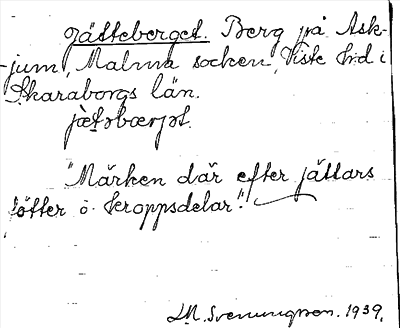 Jätteberget. Berg på Ask-
jum, Malma socken, Viste hrd i
Skaraborgs län.
jætsbærjət.
"Märken där efter jättars
fötter o. kroppsdelar".
L.M. Svenungsson. 1939.